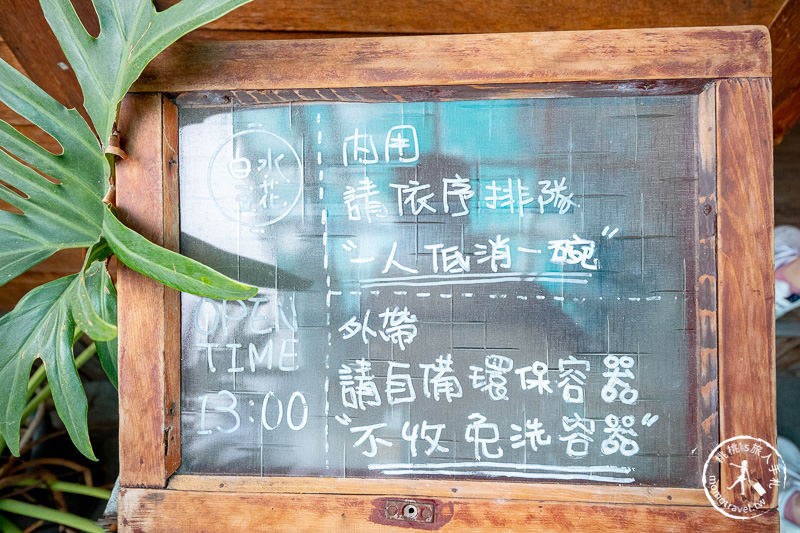 白水
花
OPEN
TIME
13:00
內用
請依序排隊
"一人低消一碗"
外帶
請自備環保容器
"不收免洗容器"
桃桃's旅人手札
momotravel.tw